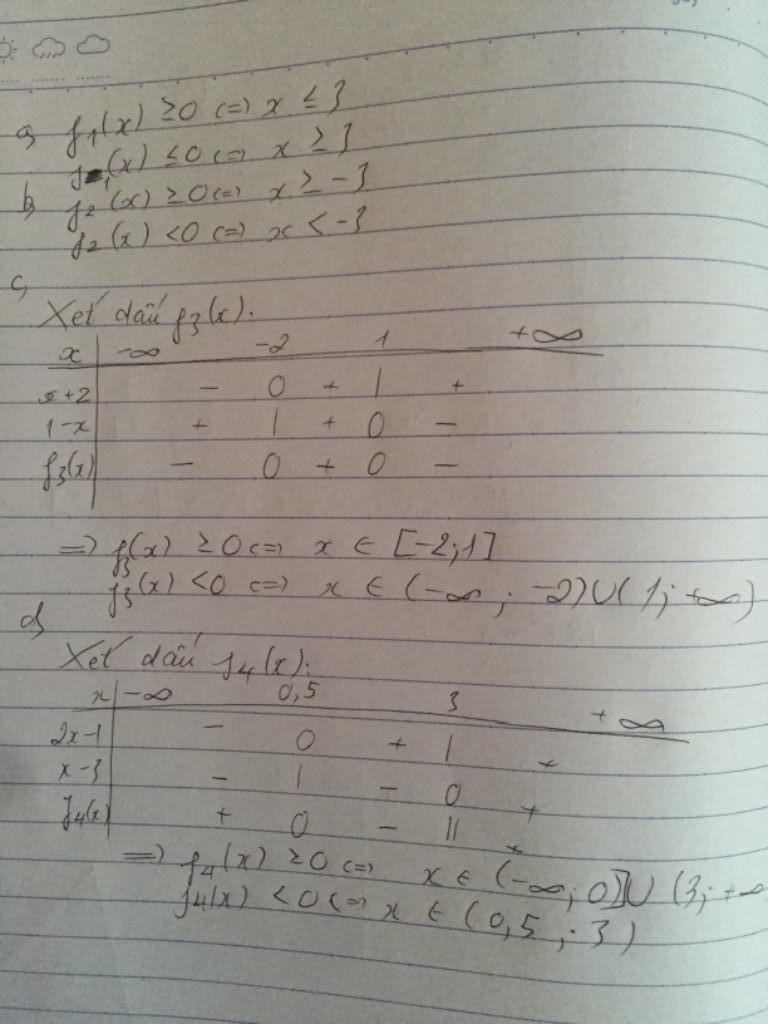 a) f1(x) ≥0 <=> x ≤ 3
f1(x) ≤0 <=> x ≥ 3
b) f2(x) ≥0 <=> x ≥ -3
f2(x) <0 <=> x < -3
c)
Xét dấu f3(x).
x -∞ -2 1 +∞
x+2 - 0 + | +
1-x + | + 0 -
f3(x) - 0 + 0 -
=> f3(x) ≥0 <=> x ∈ [-2;1]
f3(x) <0 <=> x ∈ (-∞; -2)∪(1; +∞)
d)
Xét dấu f4(x):
x -∞ 0,5 3 +∞
2x-1 - 0 + | +
x-3 - | - 0 +
f4(x) + 0 - || +
=> f4(x) ≥0 <=> x ∈ (-∞; 0]∪ (3; +∞
f4(x) <0 <=> x ∈ (0,5 ; 3)